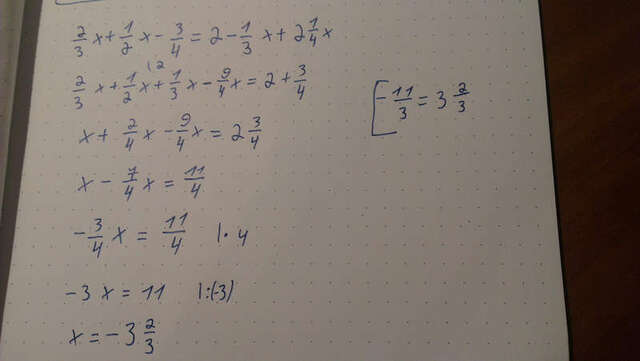 2/3 x + 1/2 x - 3/4 = 2 - 1/3 x + 2 1/4 x
2/3 x + 1/2 x + 1/3 x - 9/4 x = 2 + 3/4
x + 2/4 x - 9/4 x = 2 3/4
x - 7/4 x = 11/4
- 3/4 x = 11/4 |· 4
-3 x = 11 |:(-3)
x = -3 2/3
[- 11/3 = 3 2/3